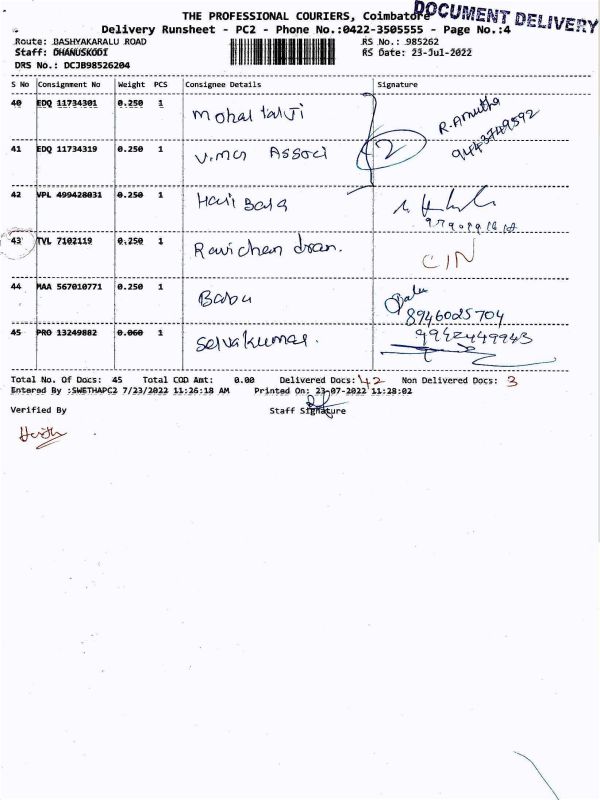 DOCUMENT DELIVERY
THE PROFESSIONAL COURIERS, Coimbatore
Delivery Runsheet - PC2 - Phone No.:0422-3505555 - Page No.:4
Route: BASHYAKARALU ROAD RS No.: 985262
Staff: DHANUSKODI RS Date: 23-Jul-2022
DRS No.: DCJB98526204
S No Consignment No Weight PCS Consignee Details Signature
40 EDQ 11734301 0.250 1 Mohal talji R.Amutha
9443749592
41 EDQ 11734319 0.250 1 V.mcs Associ 2
42 VPL 499428031 0.250 1 Hari Bala
43 TVL 7102119 0.250 1 Ravichandran. CIN
44 MAA 567010771 0.250 1 Babu Babu
8946025704
45 PRO 13249882 0.060 1 Selvakumar. 9942449943
Total No. Of Docs: 45 Total COD Amt: 0.00 Delivered Docs: 42 Non Delivered Docs: 3
Entered By :SWETHAPC2 7/23/2022 11:26:18 AM Printed On: 23-07-2022 11:28:02
Verified By Staff Signature